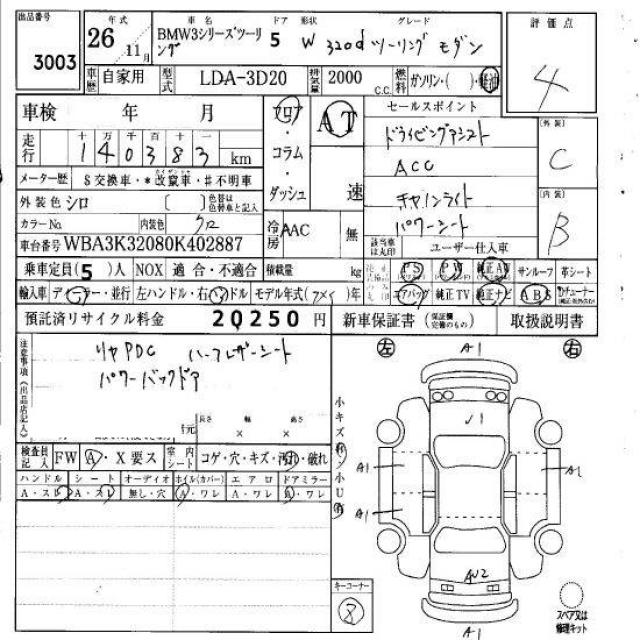 出品番号 3003
年式 26年 11月
車名 BMW3シリーズツーリング
ドア 形状 5 W
グレード 320d ツーリング モダン
評価点 4
車歴 自家用 型式 LDA-3D20 排気量 2000 C.C. 燃料 ガソリン・( )・軽油
車検 年 月
走行 十万千百十一 140383 km
メーター歴 $交換車・*改竄車・#不明車
外装色 シロ [ ] 色替は色替車と記入
カラーNo 内装色 クロ
車台番号 WBA3K32080K402887
フロア・コラム・ダッシュ
AT 速
冷房 AAC 無
セールスポイント
ドライビングアシスト
ACC
パワーシート
該当車は丸印 ユーザー仕入車
外装 C
内装 B
乗車定員(5)人 NOX 適合・不適合 積載量 kg
PS PW 純正AW サンルーフ 革シート
輸入車 ディーラー・並行 左ハンドル・右ハンドル モデル年式( )年
エアバッグ 純正TV 純正ナビ ABS
預託済リサイクル料金 20250 円
新車保証書 取扱説明書
注意事項(出品店記入)
リヤPDC ハーフレザーシート
パワーバックドア
長さ 幅 高さ
× × ×
検査員記入 FW A・X要ス 室内シート コゲ・穴・キズ・汚れ・破れ
ハンドル シート オーディオ ホイル(カバー) エアロ ドアミラー
A・スレ A・スレ 無し・穴 A・ワレ A・ワレ A・ワレ
小キズ 小U
左 右
A1
√1
A1
A1
A1
AU2
A1
キーコーナー
8
スペア又は修理キット